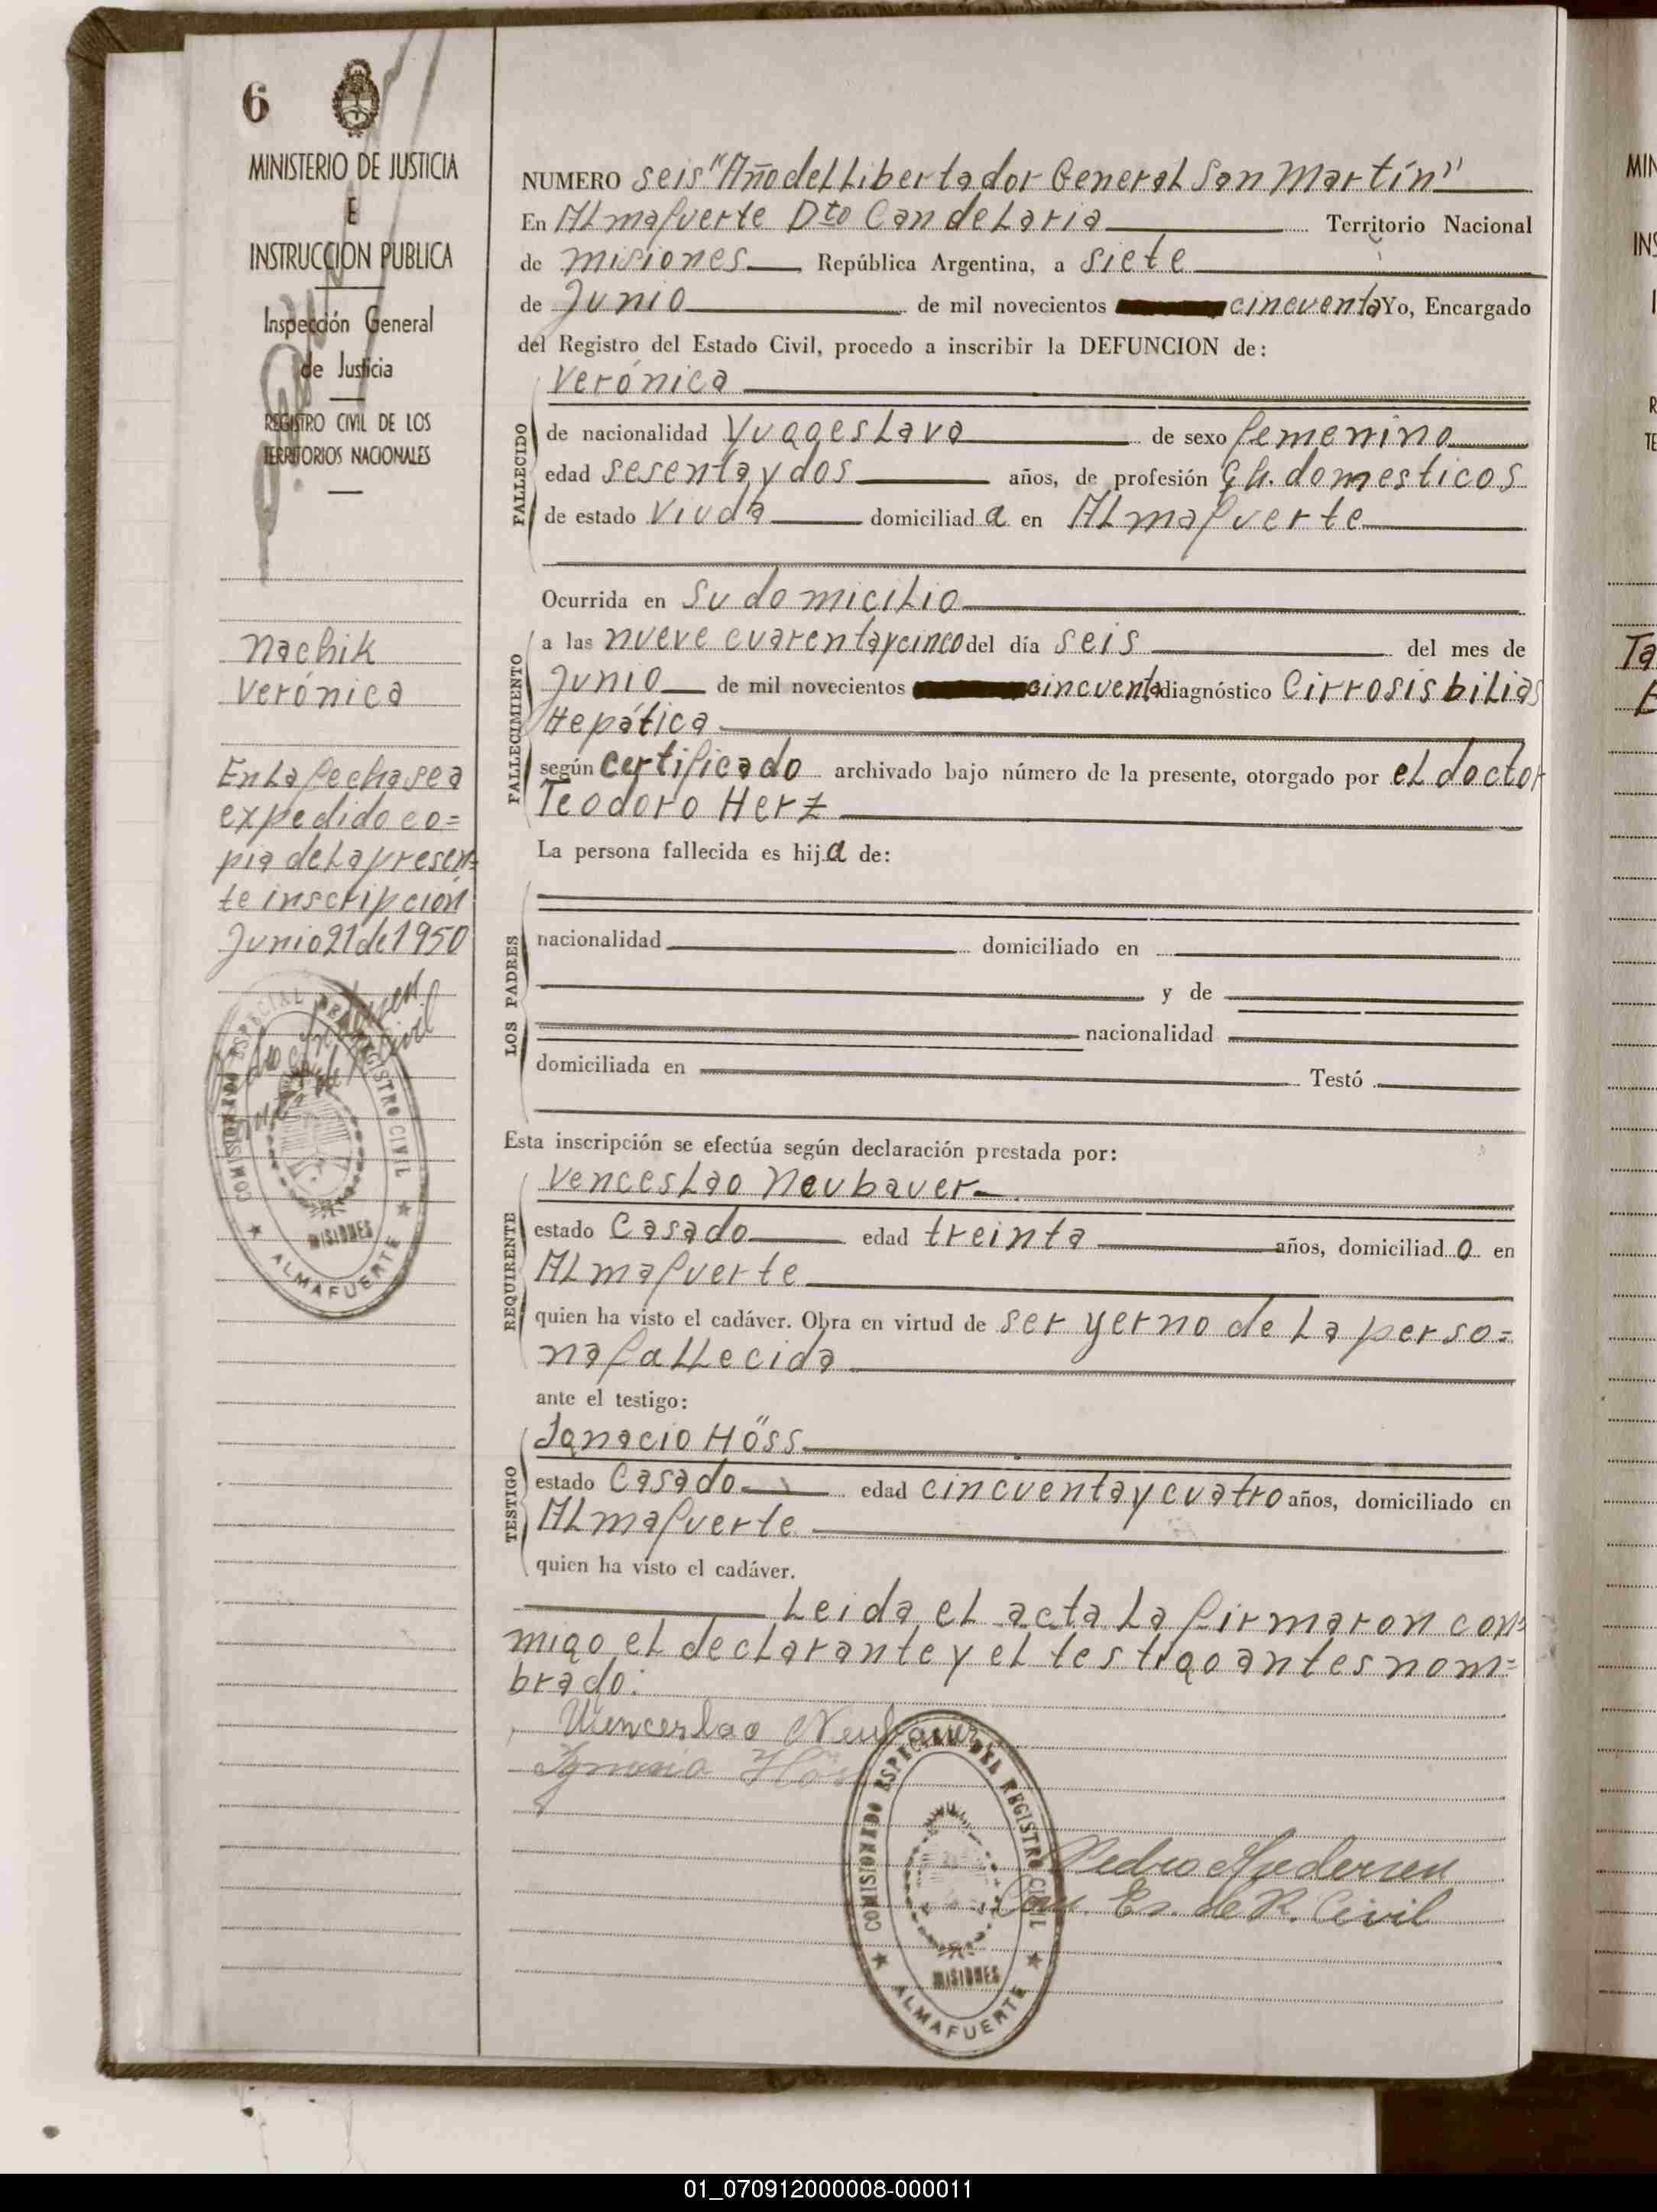 6
MINISTERIO DE JUSTICIA
E
INSTRUCCION PUBLICA
Inspección General
de Justicia
REGISTRO CIVIL DE LOS
TERRITORIOS NACIONALES
Nachik
Verónica
En la fecha se a
expedido co=
pia de la presen=
te inscripción
Junio 21 de 1950
COMISIONADO ESPECIAL DEL REGISTRO CIVIL
MISIONES
ALMAFUERTE
NUMERO seis "Año del Libertador General San Martín"
En Almafuerte Dto Candelaria Territorio Nacional
de Misiones República Argentina, a siete
de Junio de mil novecientos cincuenta Yo, Encargado
del Registro del Estado Civil, procedo a inscribir la DEFUNCION de:
Verónica
FALLECIDO
de nacionalidad Yugoeslava de sexo femenino
edad sesenta y dos años, de profesión q h. domesticos
de estado Viuda domiciliad a en Almafuerte
Ocurrida en su domicilio
FALLECIMIENTO
a las nueve cuarenta y cinco del día seis del mes de
Junio de mil novecientos cincuenta diagnóstico Cirrosis bilias
Hepática
según certificado archivado bajo número de la presente, otorgado por el doctor
Teodoro Herz
La persona fallecida es hij a de:
LOS PADRES
nacionalidad domiciliado en
y de
nacionalidad
domiciliada en Testó
Esta inscripción se efectúa según declaración prestada por:
REQUIRENTE
Venceslao Neubauer
estado Casado edad treinta años, domiciliad o en
Almafuerte
quien ha visto el cadáver. Obra en virtud de ser yerno de la perso=
na fallecida
ante el testigo:
TESTIGO
Ignacio Höss
estado Casado edad cincuenta y cuatro años, domiciliado en
Almafuerte
quien ha visto el cadáver.
Leida el acta la firmaron con=
migo el declarante y el testigo antes nom=
brado:
Wenceslao Neubauer
Ignacio Höss
COMISIONADO ESPECIAL DEL REGISTRO CIVIL
MISIONES
ALMAFUERTE
Pedro Andersen
Com. Es. de R. Civil
01_070912000008-000011